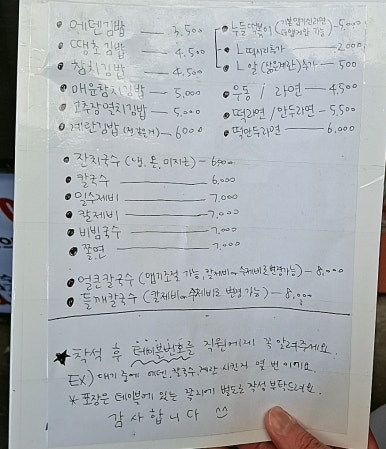 에덴김밥 — 3,500
땡초김밥 — 4,500
참치김밥 — 4,500
매운참치김밥 — 5,000
고추장멸치김밥 — 5,000
계란김밥 — 6000
누들떡볶이 (기본맵기신라면 덜맵게 가능) - 5,000
ㄴ 떡사리추가 — 2,000
ㄴ 알 (삶은계란)추가 — 500
우동 / 라면 — 4,500
떡라면 / 만두라면 — 5,500
떡만두라면 — 6,000
잔치국수 (냉, 온, 미지근) — 6000
칼국수 — 6,000
얼수제비 — 7,000
칼제비 — 7,000
비빔국수 — 7,000
쫄면 — 7,000
얼큰칼국수 (맵기조절 가능, 칼제비 or 수제비로 변경가능) — 8,000
들깨칼국수 (칼제비 or 수제비로 변경 가능) — 8,000
★ 착석 후 테이블번호를 직원에게 꼭 알려주세요.
EX) 대기 중에 에덴, 칼국수, 계란 시킨자 몇 번 이에요.
* 포장은 테이블에 있는 쪽지에 별도로 작성 부탁드려요
감사합니다 ^^